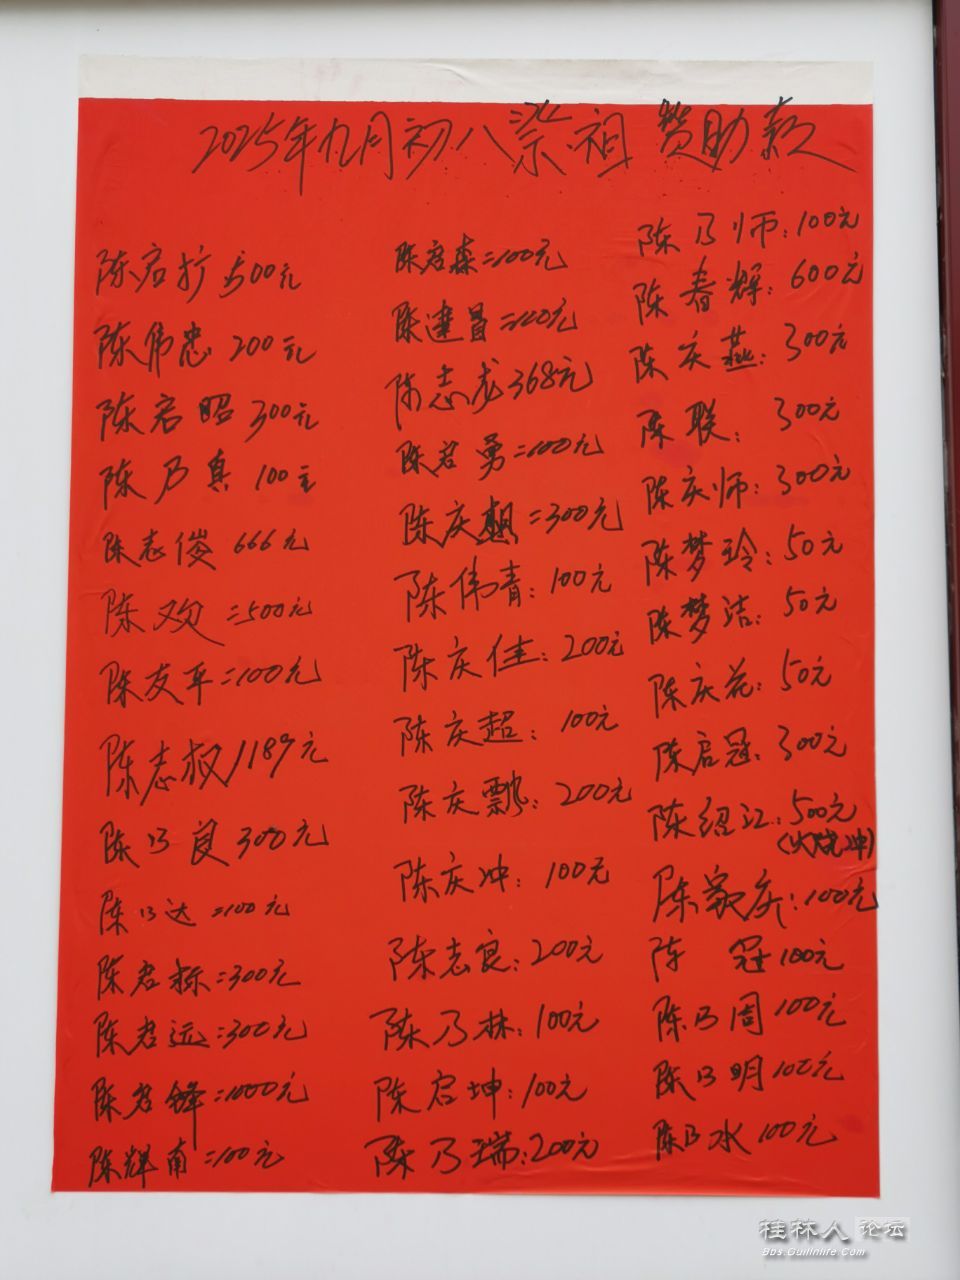 2025年九月初八祭祖 赞助款
陈启扩 500元
陈伟忠 200元
陈启昭 300元
陈乃真 100元
陈志俊 666元
陈欢=500元
陈友平=100元
陈志权 1189元
陈乃良 300元
陈乃达=100元
陈启标=300元
陈启远=300元
陈启锋=1000元
陈辉南=100元
陈启森=100元
陈建昌=100元
陈志龙 368元
陈启勇=100元
陈庆=300元
陈伟青：100元
陈庆佳：200元
陈庆超：100元
陈庆飘：200元
陈庆冲：100元
陈志良：200元
陈乃林：100元
陈启坤：100元
陈乃瑞：200元
陈乃师：100元
陈春辉：600元
陈庆燕：300元
陈联：300元
陈庆师：300元
陈梦玲：50元
陈梦洁：50元
陈庆花：50元
陈启冠：300元
陈绍江：500元
陈家庆：100元
陈 冠 100元
陈乃周 100元
陈乃明 100元
陈乃水 100元
桂林人论坛
Bbs.Guilinlife.Com